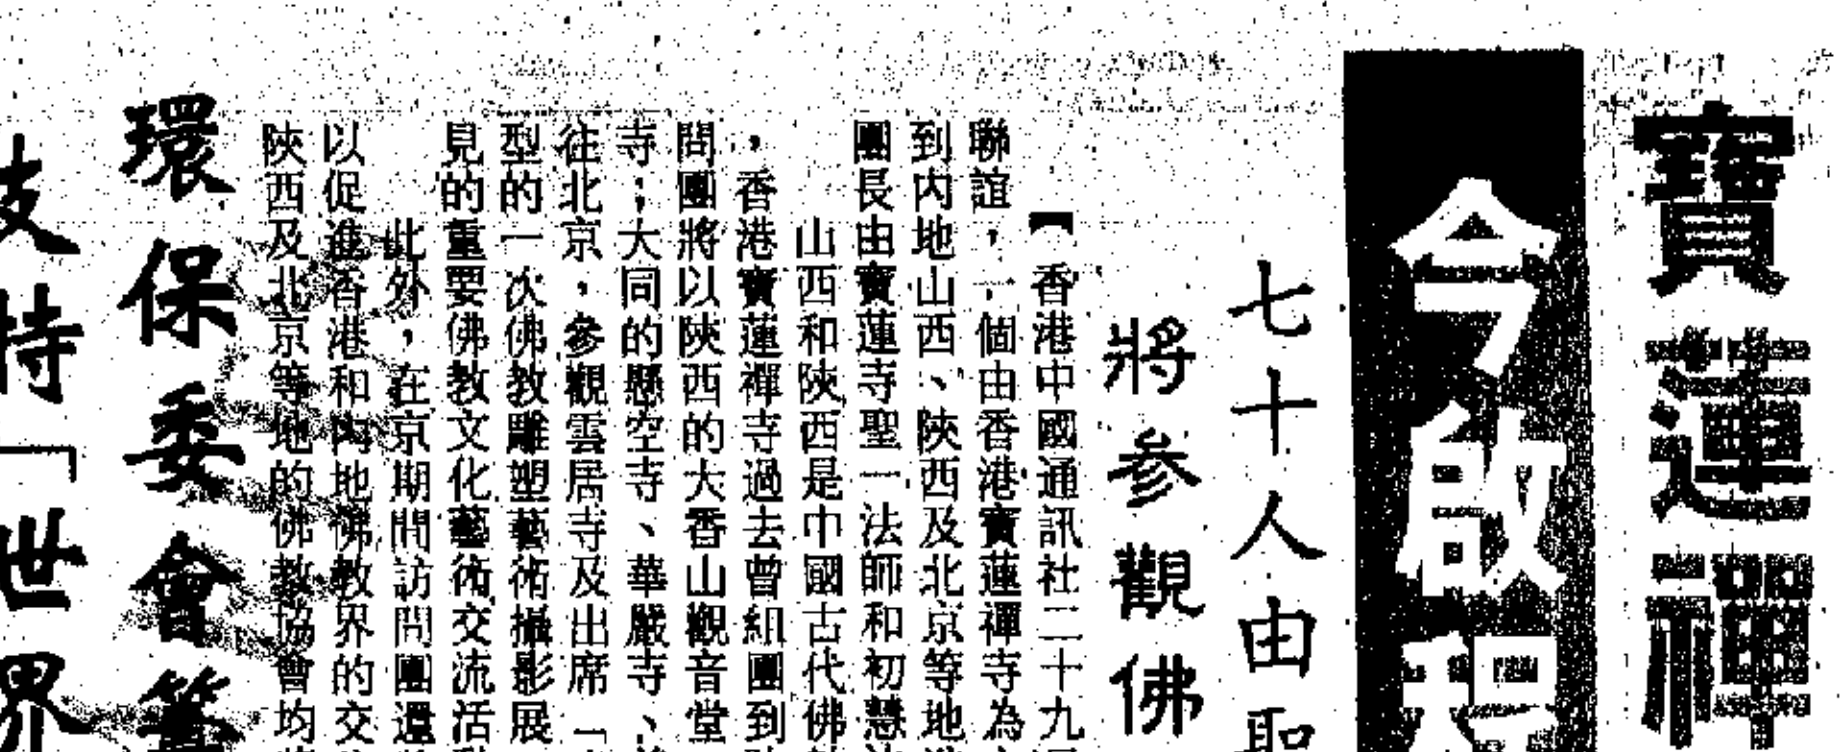 寶蓮禪
今啟程
七十人由聖
將參觀佛
【香港中國通訊社二十九
聯誼，一個由香港寶蓮禪寺為
到內地山西、陝西及北京等地
團長由寶蓮寺聖一法師和初慧
山西和陝西是中國古代佛
，香港寶蓮禪寺過去曾組團到
問團將以陝西的大香山觀音堂
寺；大同的懸空寺、華嚴寺、
往北京，參觀雲居寺及出席「
型的一次佛教雕塑藝術攝影展
見的重要佛教文化藝術交流活
此外，在京期間訪問團還
以促進香港和內地佛教界的交
陝西及北京等地的佛教協會均
環保委會籌
支持「世界